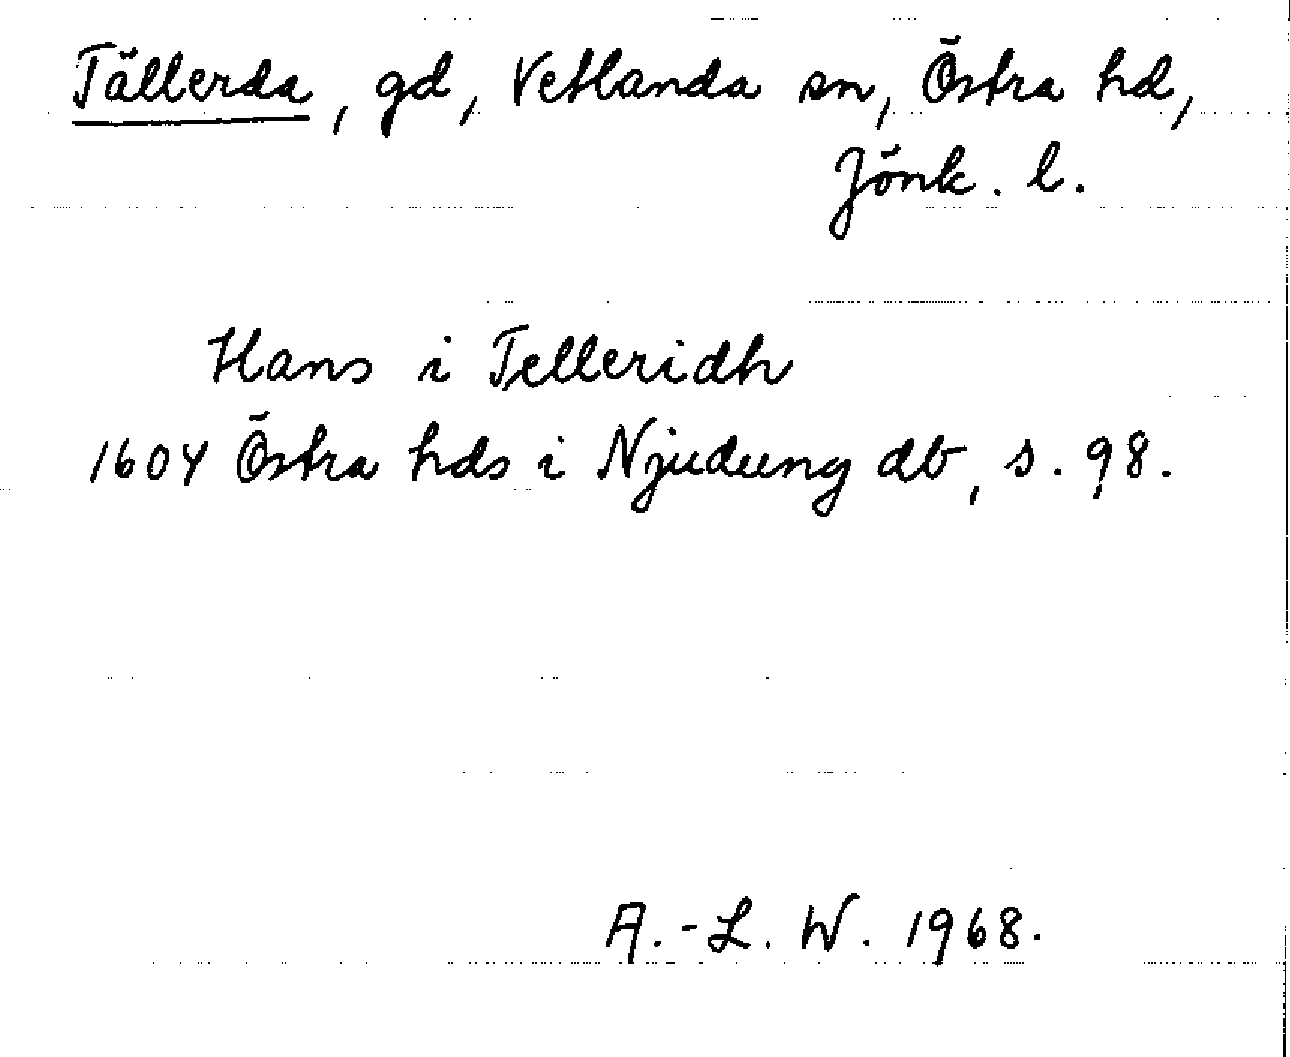 Tällerda, gd, Vetlanda sn, Östra hd,
Jönk. l.
Hans i Telleridh
1604 Östra hds i Njudung db, s. 98.
A.-L. W. 1968.